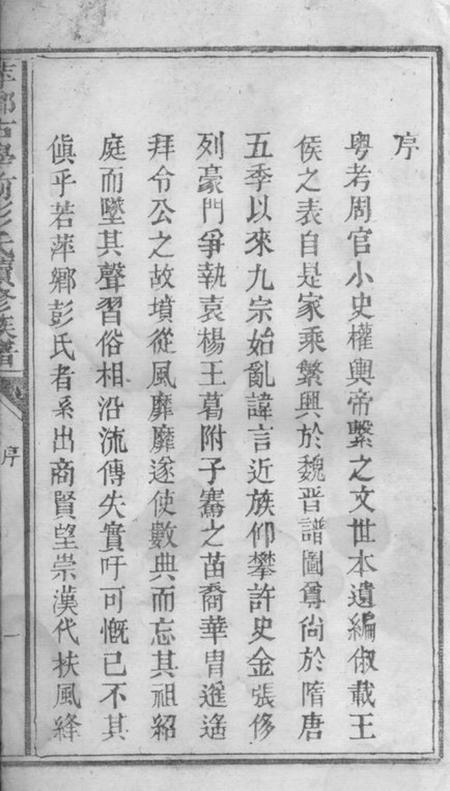 序
粤考周官小史權輿帝繫之文世本遺編俶載王
侯之表自是家乘繁興於魏晋譜圖尊尚於隋唐
五季以來九宗始亂諱言近族仰攀許史金張侈
列豪門爭執袁楊王葛附子騫之苗裔華胄遥遥
拜令公之故墳從風靡靡遂使數典而忘其祖紹
庭而墜其聲習俗相沿流傳失實吁可慨已不其
傎乎若萍鄉彭氏者系出商賢望崇漢代扶風絳
彭氏續修族譜
序
一